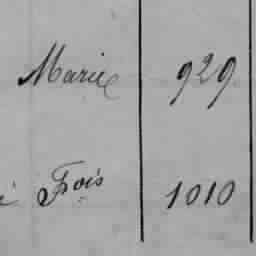 Marie 929
Fois 1010